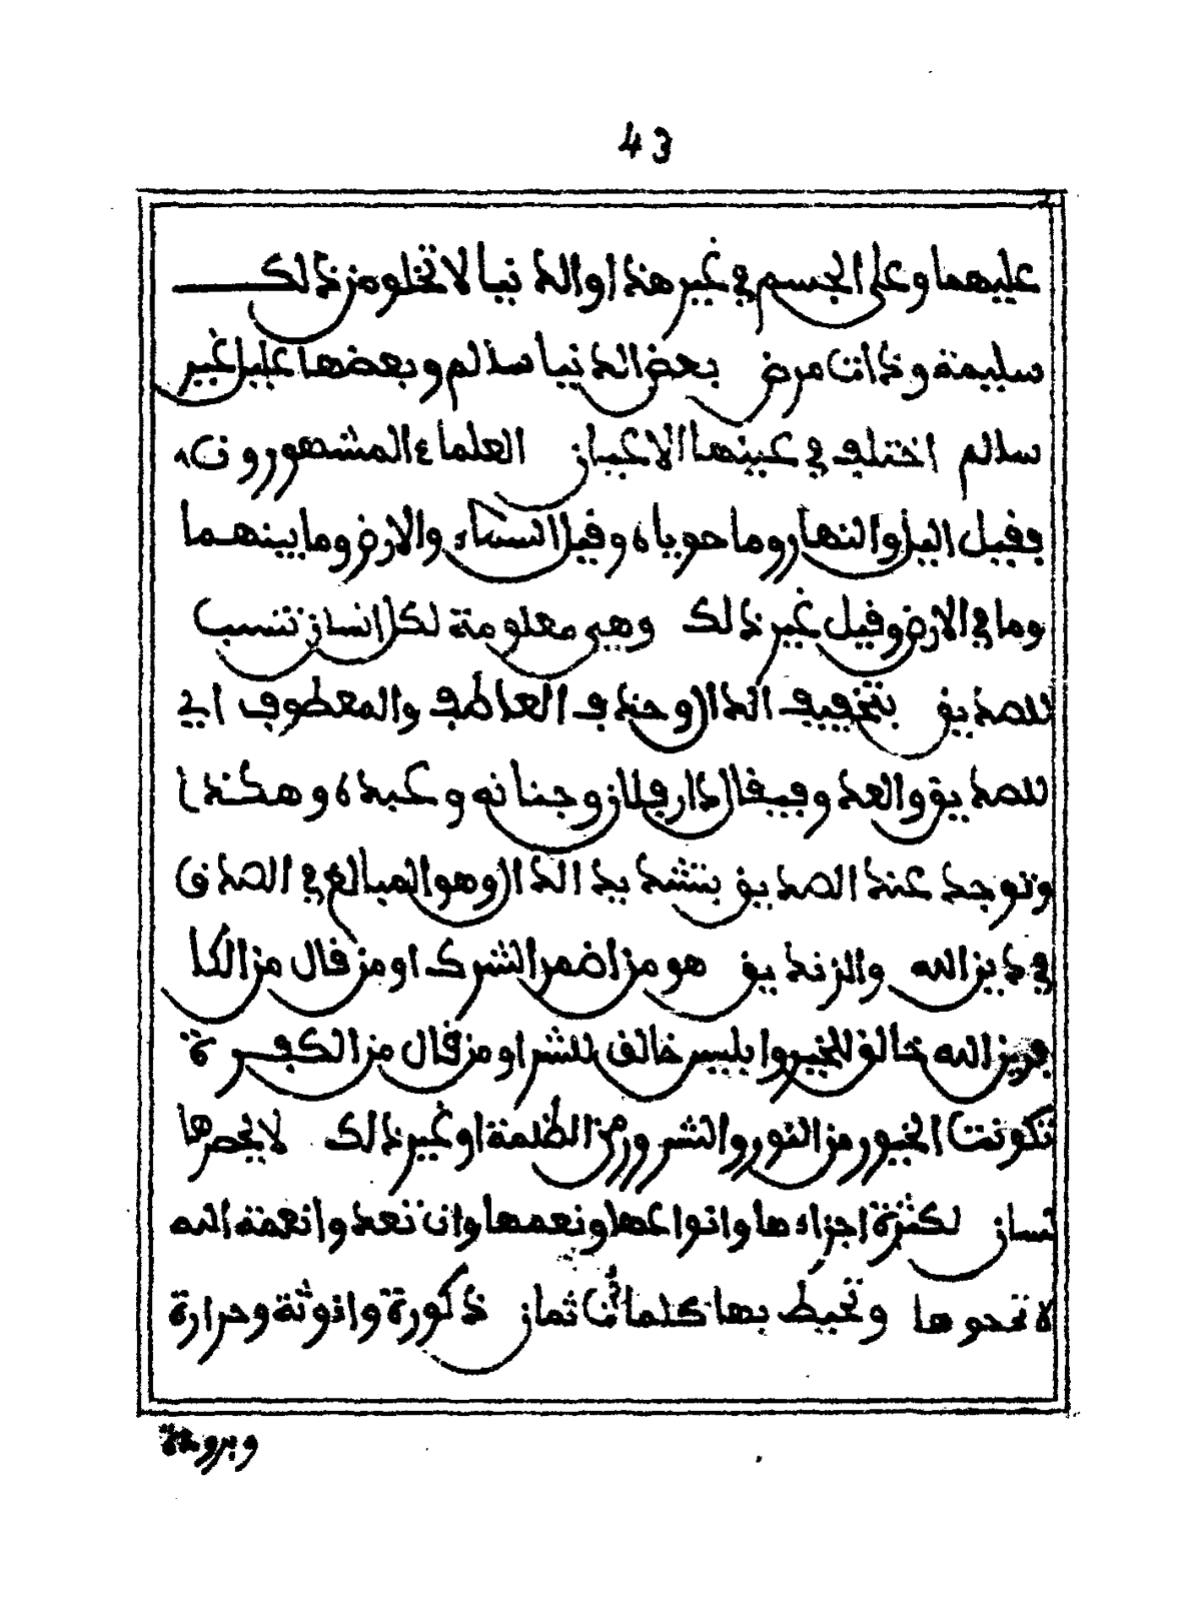 43
عليهما وعلى الجسم في غير هذا والدنيا لا تخلو من ذلك
سليمة وذات مرض بعض الدنيا سالم وبعضها عليل غير
سالم اختلف في عينها الاعيان العلماء المشهورون
فقيل اليل والنهار وما حوياه وقيل السماء والارض وما بينهما
وما في الارض وقيل غير ذلك وهي معلومة لكل انسان تنسب
للصديق بتخفيف الدال وحذف العاطف والمعطوف اي
للصديق والعد وفيقال دار فلان وجنانه وعبده وهكذا
وتوجد عند الصديق بتشديد الدال وهو المبالغ في الصدق
في دين الله والزنديق هو من اضمر الشرك او من قال من الكا
فرين الله خالق للخير وابليس خالق للشر او من قال من الكفرة
تكونت الخيور من النور والشرور من الظلمة او غير ذلك لا يحصرها
نسان لكثرة اجزاءها وانواعها ونعمها وان تعدوا نعمة الله
لا تحصوها وتحيط بها كلمات ثمان ذكورة وانوثة وحرارة
وبرودة